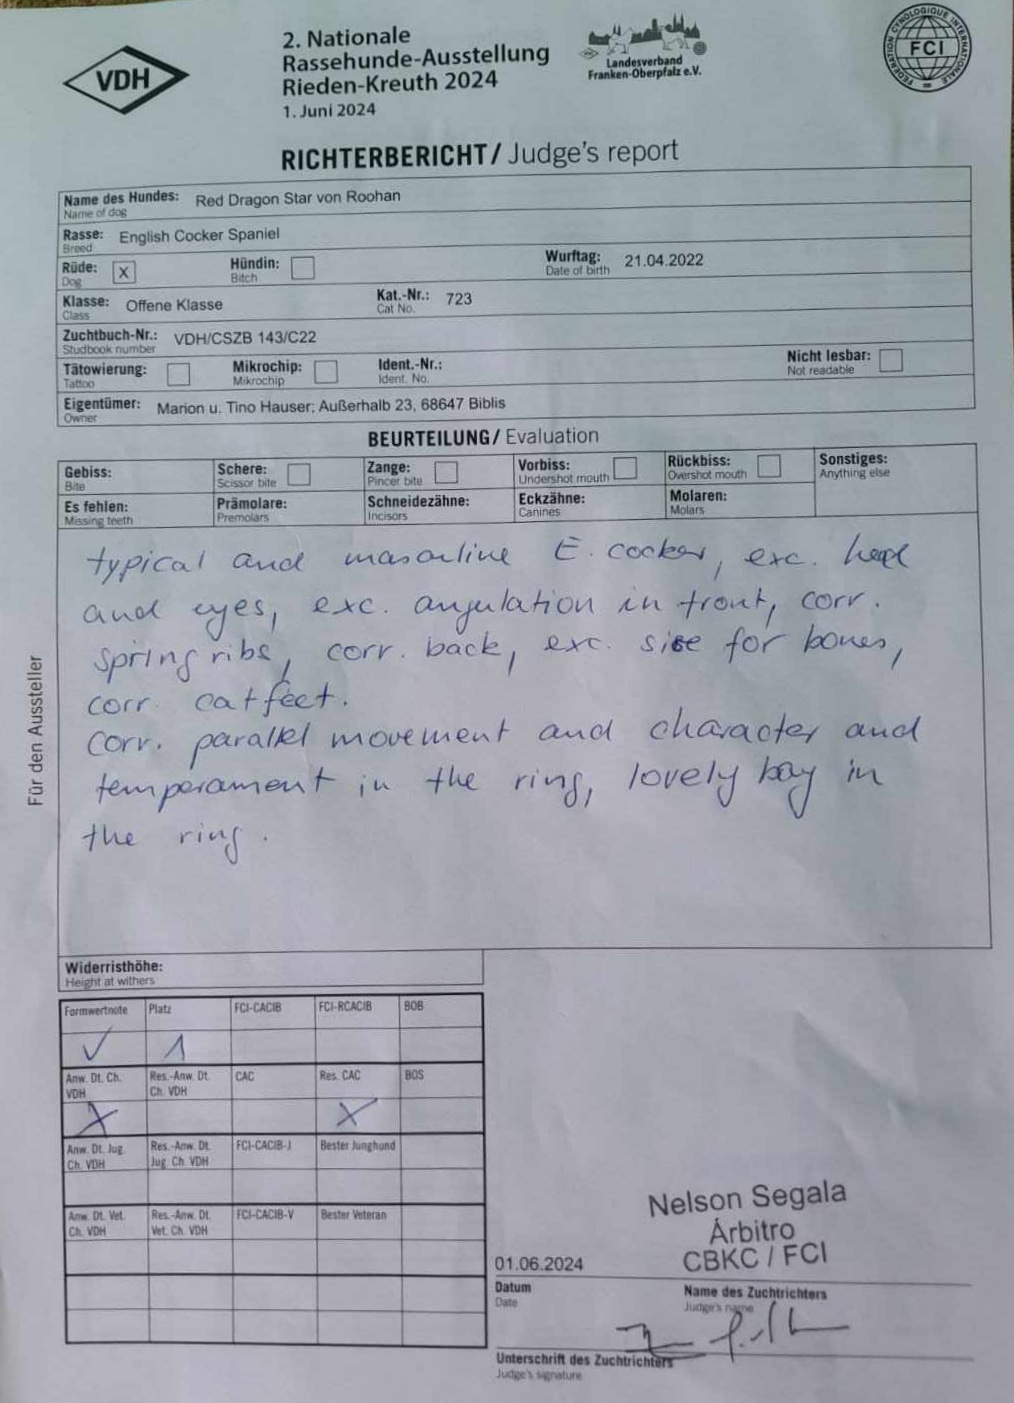 VDH
2. Nationale
Rassehunde-Ausstellung
Rieden-Kreuth 2024
1. Juni 2024
Landesverband
Franken-Oberpfalz e.V.
FEDERATION CYNOLOGIQUE INTERNATIONALE
FCI
RICHTERBERICHT/ Judge's report
Name des Hundes: Red Dragon Star von Roohan
Name of dog
Rasse: English Cocker Spaniel
Breed
Rüde: X Hündin: Wurftag: 21.04.2022
Dog Bitch Date of birth
Klasse: Offene Klasse Kat.-Nr.: 723
Class Cat No.
Zuchtbuch-Nr.: VDH/CSZB 143/C22
Studbook number
Tätowierung: Mikrochip: Ident.-Nr.: Nicht lesbar:
Tattoo Mikrochip Ident. No. Not readable
Eigentümer: Marion u. Tino Hauser; Außerhalb 23, 68647 Biblis
Owner
BEURTEILUNG/ Evaluation
Gebiss: Schere: Zange: Vorbiss: Rückbiss: Sonstiges:
Bite Scissor bite Pincer bite Undershot mouth Overshot mouth Anything else
Es fehlen: Prämolare: Schneidezähne: Eckzähne: Molaren:
Missing teeth Premolars Incisors Canines Molars
typical and masculine E. cocker, exc. head
and eyes, exc. angulation in front, corr.
spring ribs, corr. back, exc. size for bones,
corr. catfeet.
Corr. parallel movement and character and
temperament in the ring, lovely boy in
the ring.
Für den Aussteller
Widerristhöhe:
Height at withers
Formwertnote Platz FCI-CACIB FCI-RCACIB BOB
V 1
Anw. Dt. Ch. Res.-Anw. Dt. CAC Res. CAC BOS
VDH Ch. VDH
X X
Anw. Dt. Jug. Res.-Anw. Dt. FCI-CACIB-J Bester Junghund
Ch. VDH Jug. Ch. VDH
Anw. Dt. Vet. Res.-Anw. Dt. FCI-CACIB-V Bester Veteran
Ch. VDH Vet. Ch. VDH
Nelson Segala
Árbitro
CBKC / FCI
01.06.2024
Datum Name des Zuchtrichters
Date Judge's name
Unterschrift des Zuchtrichters
Judge's signature